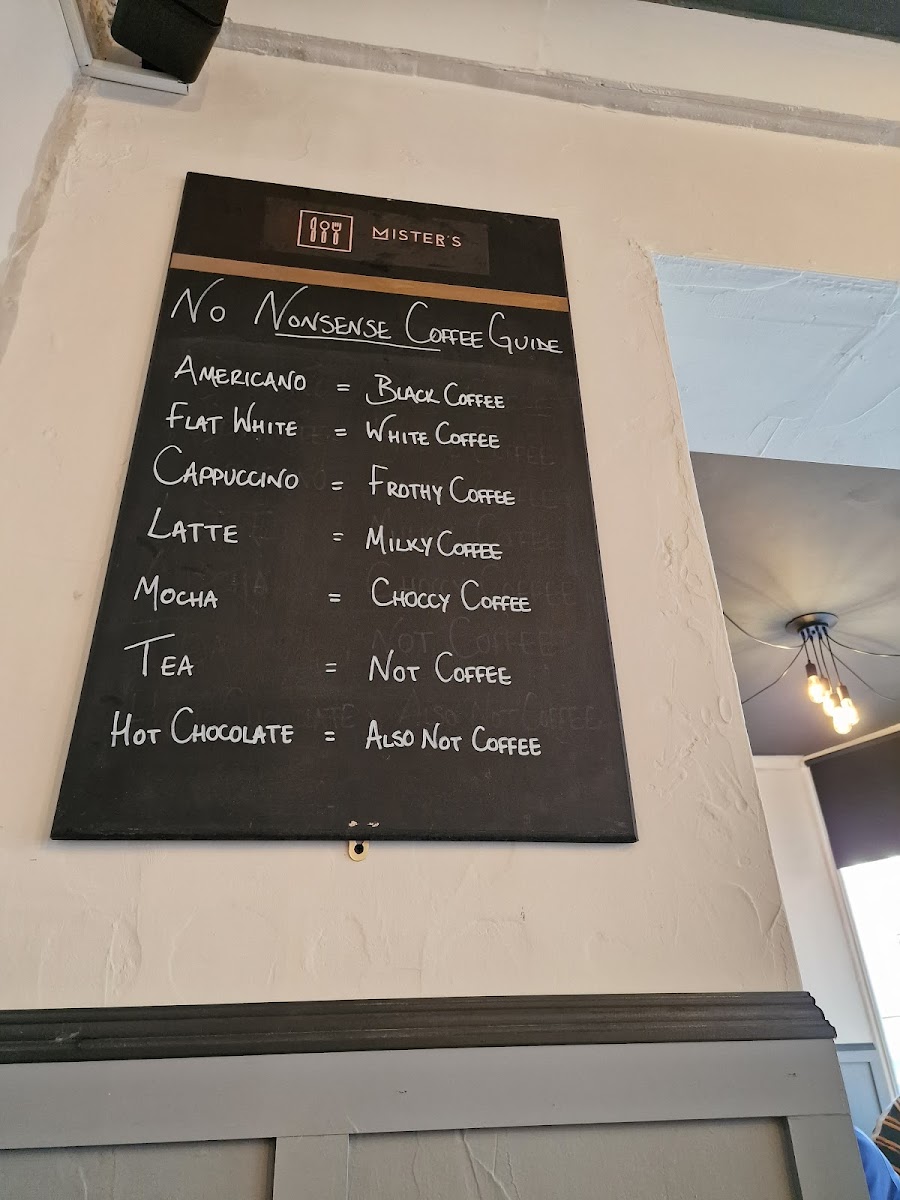 MISTER'S
NO NONSENSE COFFEE GUIDE
AMERICANO = BLACK COFFEE
FLAT WHITE = WHITE COFFEE
CAPPUCCINO = FROTHY COFFEE
LATTE = MILKY COFFEE
MOCHA = CHOCCY COFFEE
TEA = NOT COFFEE
HOT CHOCOLATE = ALSO NOT COFFEE